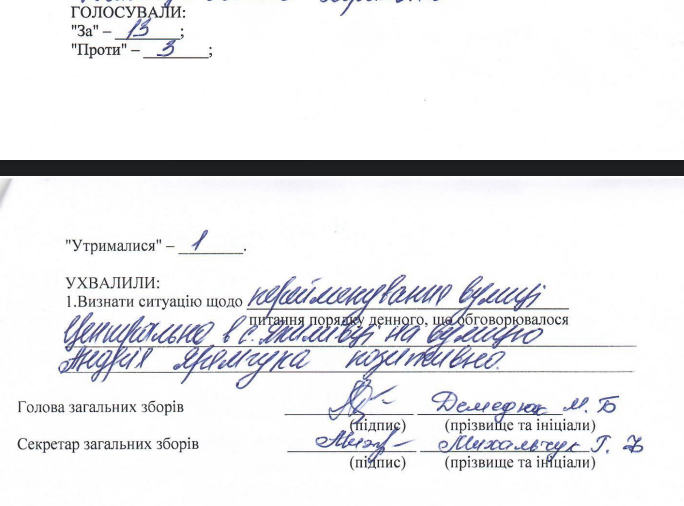 ГОЛОСУВАЛИ:
"За" – 13;
"Проти" – 3;
"Утрималися" – 1.
УХВАЛИЛИ:
1.Визнати ситуацію щодо перейменування вулиці
питання порядку денного, що обговорювалося
Центральна в с. на вулицю
Андрія Яремчука позитивно.
Голова загальних зборів Демедюк М. Б
(підпис) (прізвище та ініціали)
Секретар загальних зборів Михальчук Г. В
(підпис) (прізвище та ініціали)